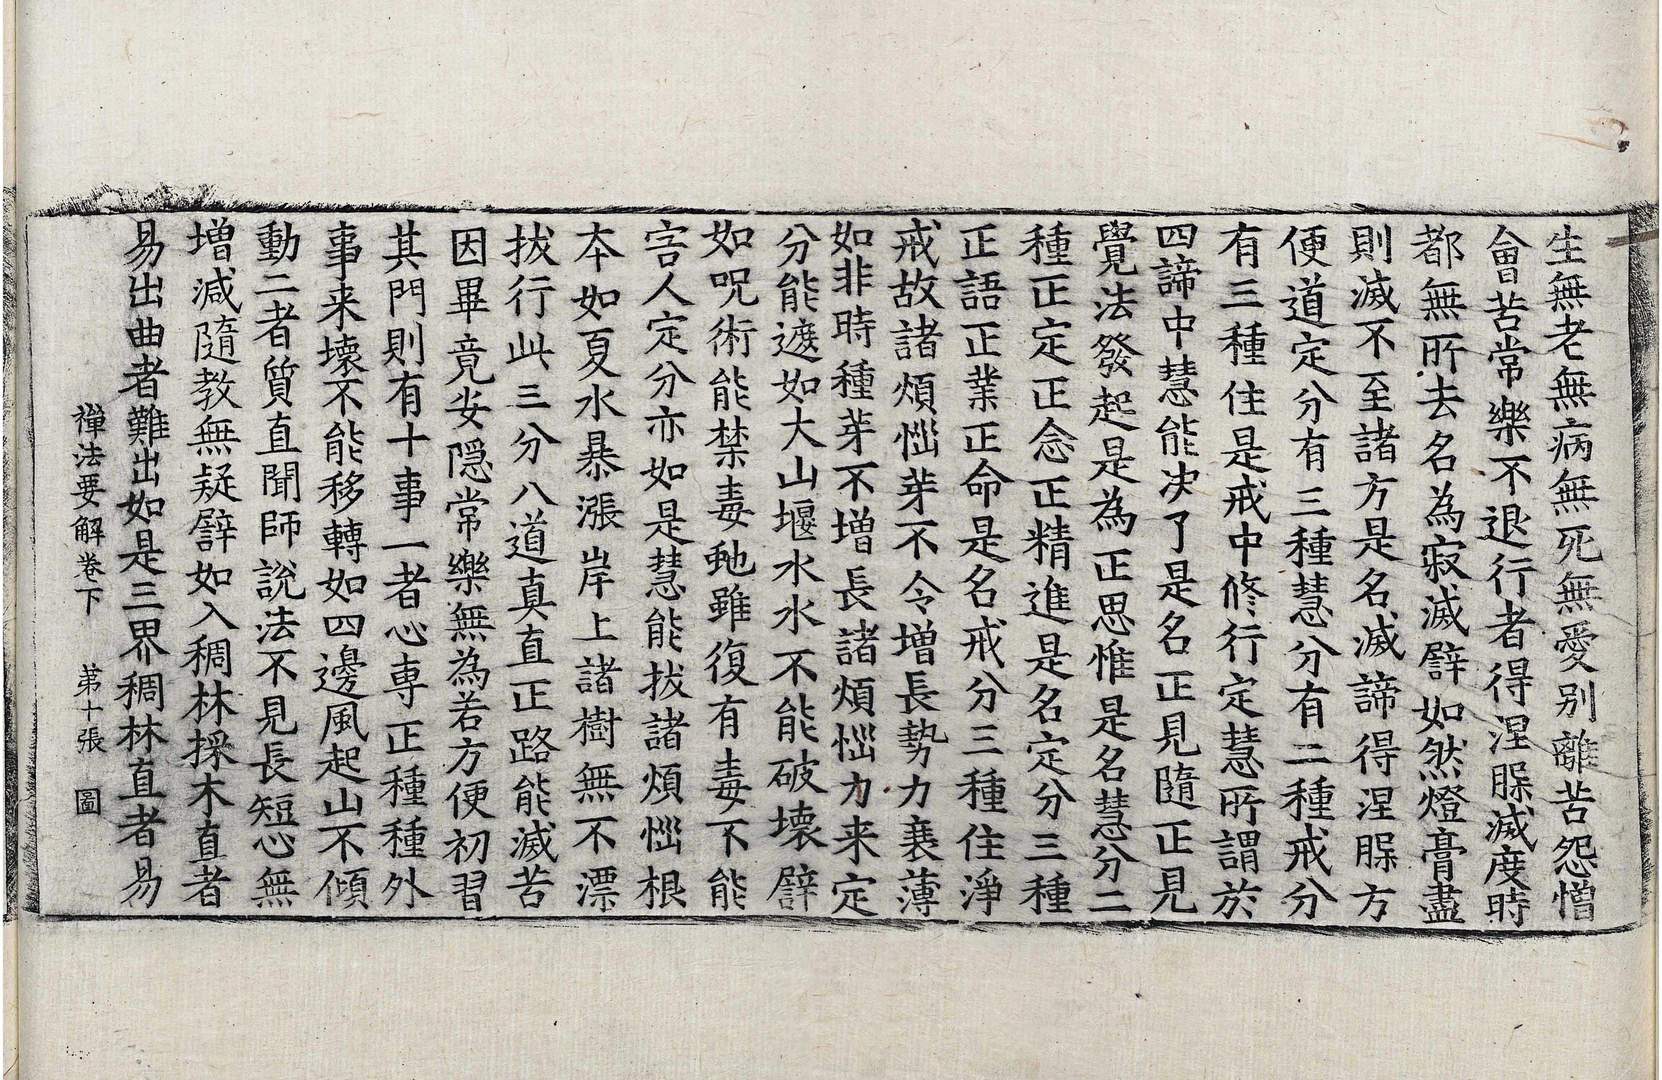 生無老無病無死無愛別離苦怨憎
會苦常樂不退行者得涅槃滅度時
都無所去名為寂滅譬如然燈膏盡
則滅不至諸方是名滅諦得涅槃方
便道定分有三種慧分有二種戒分
有三種住是戒中修行定慧所謂於
四諦中慧能決了是名正見隨正見
覺法發起是為正思惟是名慧分二
種正定正念正精進是名定分三種
正語正業正命是名戒分三種住淨
戒故諸煩惱芽不令增長勢力衰薄
如非時種芽不增長諸煩惱力来定
分能遮如大山堰水水不能破壞譬
如呪術能禁毒虵雖復有毒不能
害人定分亦如是慧能拔諸煩惱根
本如夏水暴漲岸上諸樹無不漂
拔行此三分八道真直正路能滅苦
因畢竟安隱常樂無為若方便初習
其門則有十事一者心專正種種外
事来壞不能移轉如四邊風起山不傾
動二者質直聞師說法不見長短心無
增減隨教無疑譬如入稠林採木直者
易出曲者難出如是三界稠林直者易
禪法要解卷下 第十張 圖